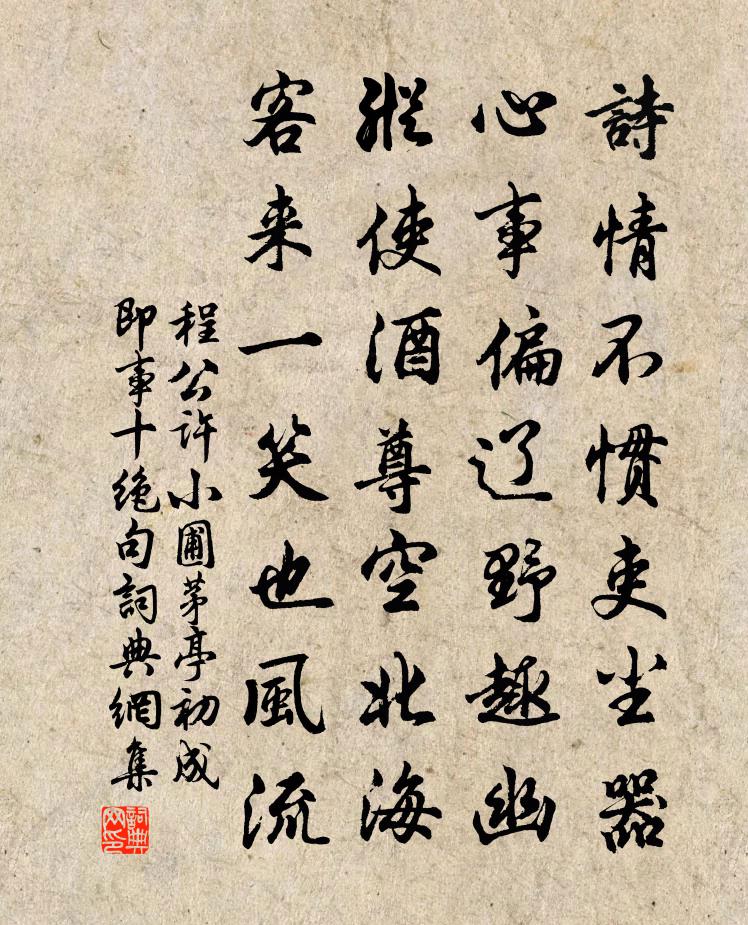 詩情不慣吏尘器
心事偏辽野趣幽
縱使酒尊空北海
客来一笑也風流
程公許小圃茅亭初成
即事十絶句詞典網集
詞典网印